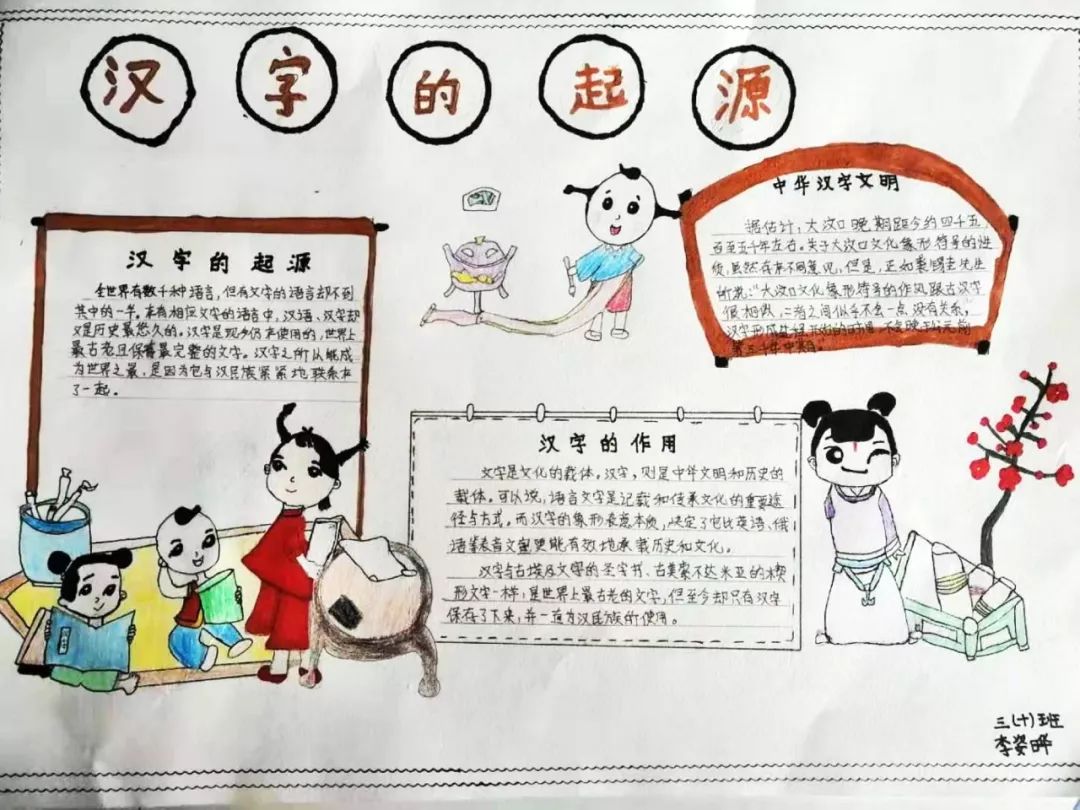 汉字的起源
汉字的起源
全世界有数千种语言,但有文字的语言却不到
其中的一半。在有相应文字的语言中,汉语、汉字却
又是历史最悠久的,汉字是现今仍在使用的,世界上
最古老且保留最完整的文字。汉字之所以能成
为世界之最,是因为它与汉民族紧紧地联系在
了一起。
中华汉字文明
据估计,大汶口晚期距今约四千五
百至五千年左右。关于大汶口文化象形符号的性
质,虽然存在不同意见,但是,正如裘锡圭先生
所说:“大汶口文化象形符号的作风跟古汉字
很相似,二者之间似乎不会一点没有关系,
汉字形成
第三千年中期。”
汉字的作用
文字是文化的载体。汉字,则是中华文明和历史的
载体。可以说,语言文字是记载和传承文化的重要途
径与方式。而汉字的象形表意本质,决定了它比英语、俄
语等表音文字更能有效地承载历史和文化。
汉字与古埃及文字的圣字书、古美索不达米亚的楔
形文字一样,是世界上最古老的文字,但至今却只有汉字
保存了下来,并一直为汉民族所使用。
三(十)班
李姿晔